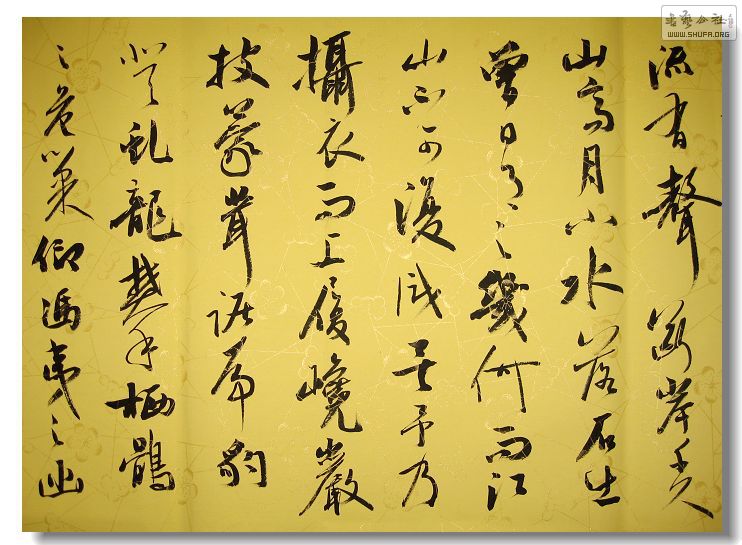 流有聲斷岸千尺
山高月小水落石出
曾日月之幾何而江
山不可復識矣予乃
攝衣而上履巉巖
披蒙茸踞虎豹
登虬龍攀栖鶻
之危巢俯馮夷之幽
书艺公社
WWW.SHUFA.ORG